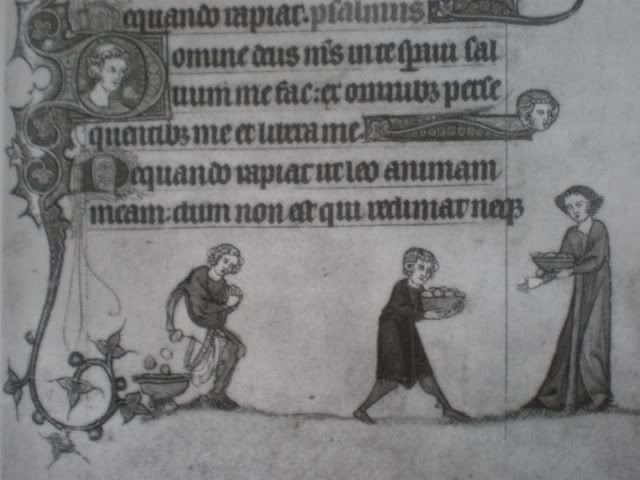 equando rapiat. psalmus
Domine deus ms in te spaui sal
uum me fac: et omnibz perse
quentibz me et libera me
Nequando rapiat ut leo animam
meam: dum non est qui redimat neqz